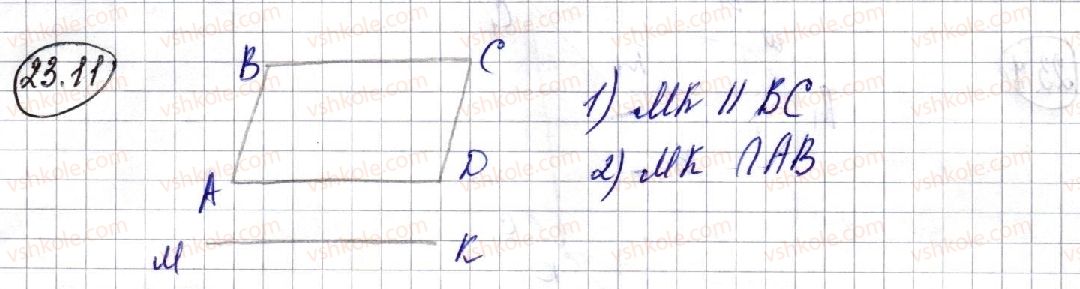 23.11
B C
A D
M K
1) MK || BC
2) MK ∩ AB